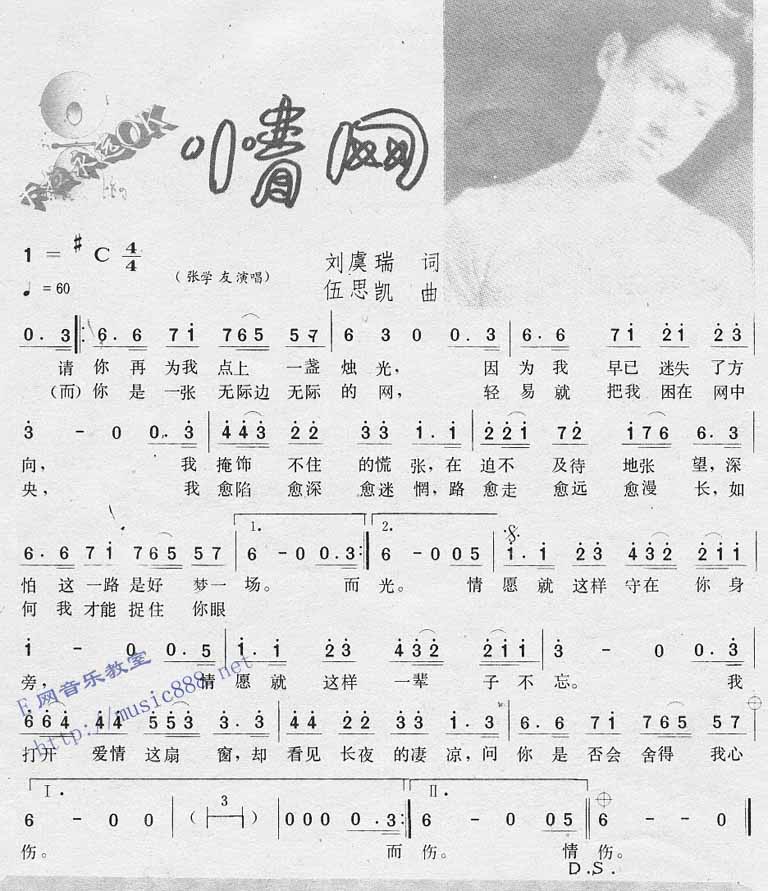 卡拉永远OK
情网
1 = #C 4/4
♩ = 60
(张学友演唱)
刘虞瑞 词
伍思凯 曲
0. 3 6. 6 7 1 7 6 5 5 7 6 3 0 0. 3 6. 6 7 1 2 1 2 3
请 你 再 为我 点上 一盏 烛光, 因 为我 早已 迷失 了方
(而) 你 是 一张 无际边 无际 的 网, 轻 易就 把我 困在 网中
3 - 0 0. 3 4 4 3 2 2 3 3 1. 1 2 2 1 7 2 1 7 6 6. 3
向, 我 掩饰 不住 的慌 张,在 迫不 及待 地张 望,深
央, 我 愈陷 愈深 愈迷 惘,路 愈走 愈远 愈漫 长,如
1. 2.
6. 6 7 1 7 6 5 5 7 6 - 0 0. 3 6 - 0 0 5 1. 1 2 3 4 3 2 2 1 1
怕 这 一路 是好 梦一 场。 而 光。 情 愿就 这样 守在 你 身
何 我 才能 捉住 你眼
1 - 0 0. 5 1. 1 2 3 4 4 2 2 1 1 3 - 0 0. 3
旁, 情 愿就 这样 一辈 子 不忘。 我
E网音乐教室
http://music888.net
6 6 4 4 4 5 5 3 3. 3 4 4 2 2 3 3 1. 3 6. 6 7 1 7 6 5 5 7
打开 爱情 这扇 窗,却 看见 长夜 的凄 凉,问 你 是 否会 舍得 我心
I. II.
6 - 0 0 ( 3 ) 0 0 0 0. 3 6 - 0 0 5 6 - - 0
伤。 而 伤。 情 伤。
D.S.